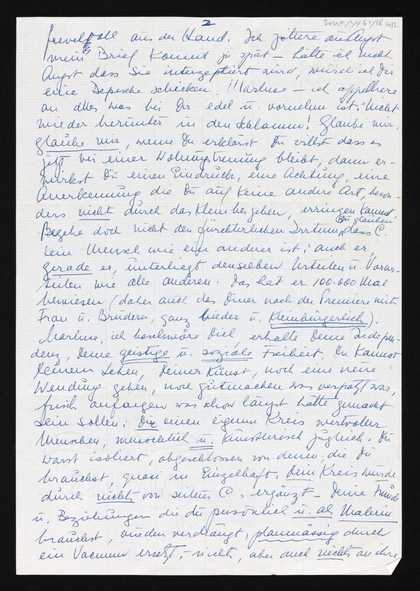 2
frevelvoll aus der Hand. Ich zittere
mein Brief kommt zu spät – hätte ich nicht
Angst dass Sie interzeptiert wird, würde ich Dir
eine Depesche schicken. !! – ich appelliere
an alles was bei Dir edel u. vornehm ist: nicht
wieder herunter in den Schlamm! Glaube mir,
glaube mir, wenn Du erklärst Du willst dass es
jetzt bei einer Wohnungstrennung bleibt, dann er-
wirbst Du einen Eindruck, eine Achtung, eine
Anerkennung die Du auf keine andere Art, beson-
ders nicht durch das Kleinbeigeben, erringen kannst.
Begehe doch nicht den fürchterlichen Irrtum, zu glauben dass C.
kein Mensch wie ein anderer ist: auch er
gerade er, unterliegt denselben Urteilen u. Vorur-
teilen wie alle anderen. Das hat er 100.000 Mal
bewiesen (daher auch das Diner nach der Premiere mit
Frau u. Brüdern, ganz bieder u. kleinbürgerlich).
ich beschwöre Dich, erhalte Deine Indepen-
denz, Deine geistige u. soziale Freiheit. Du kannst
Deinem Leben, Deiner Kunst, noch eine neue
Wendung geben, noch gutmachen was verpatzt war,
frisch anfangen was schon längst hätte gemacht
sein sollen: Dir einen eigenen Kreis wertvoller
Menschen, menschlich u. künstlerisch Du
warst isoliert, abgeschlossen von denen, die Du
brauchst, quasi in Einzelhaft. Dein Kreis wurde
durch nichts von seiten C. ergänzt – Deine Freunde
u. Beziehungen die Du persönlich u. als Malerin
brauchst, wurden verdrängt, planmässig durch
ein Vacuum ersetzt, – nicht, aber auch nichts an ihre